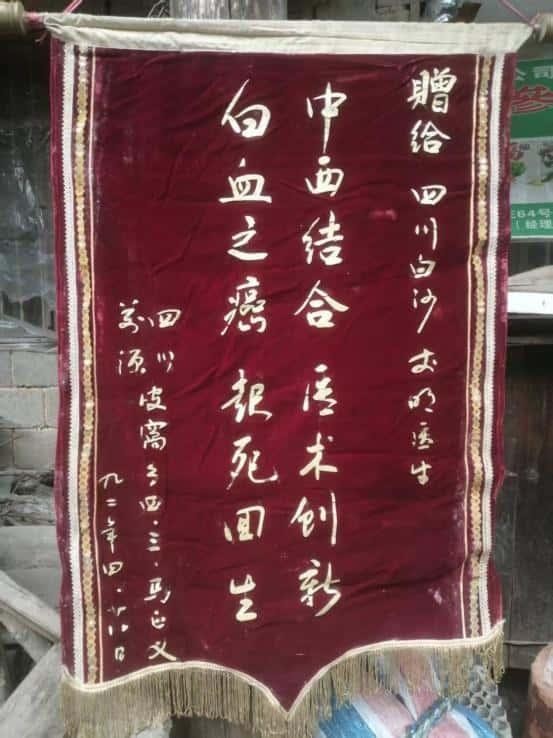 贈给 四川白沙 明医生
中西结合 医术创新
白血之癌 起死回生
四川
萬源
皮窝乡四·三·馬正义
九二年四·廿八日
公司
參
64号
（经理